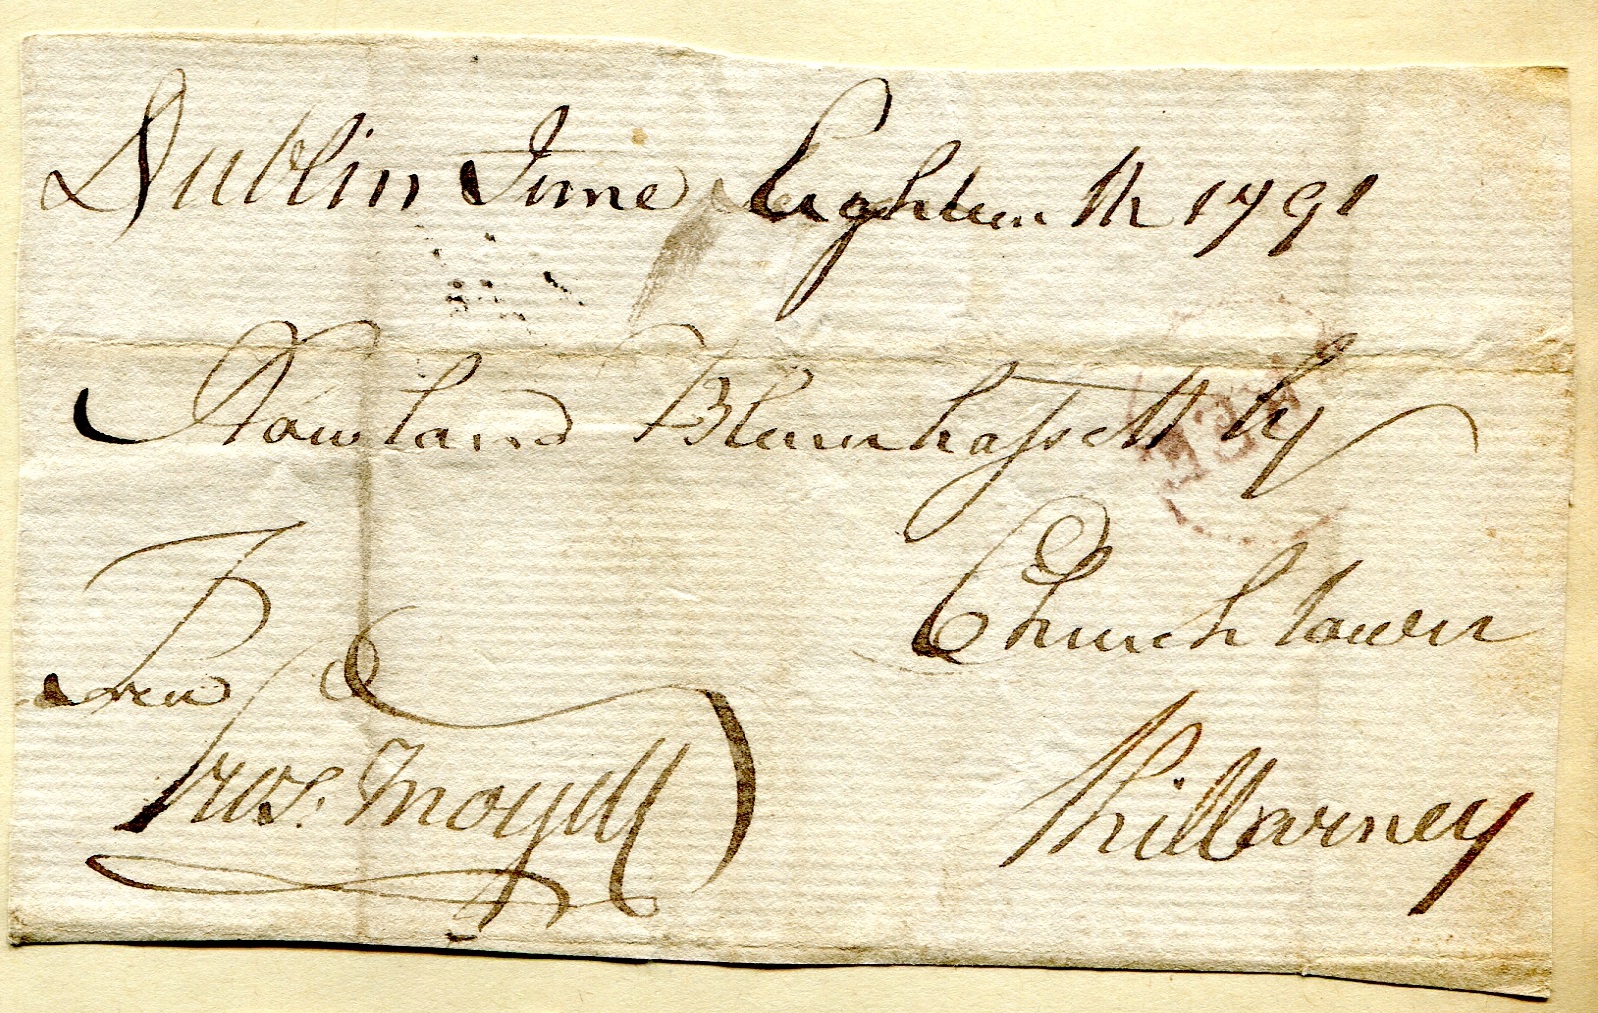 Dublin June Eighteenth 1791
Rowland Blennerhassett
Churchtown
Free Killarney
Thos. Moyell